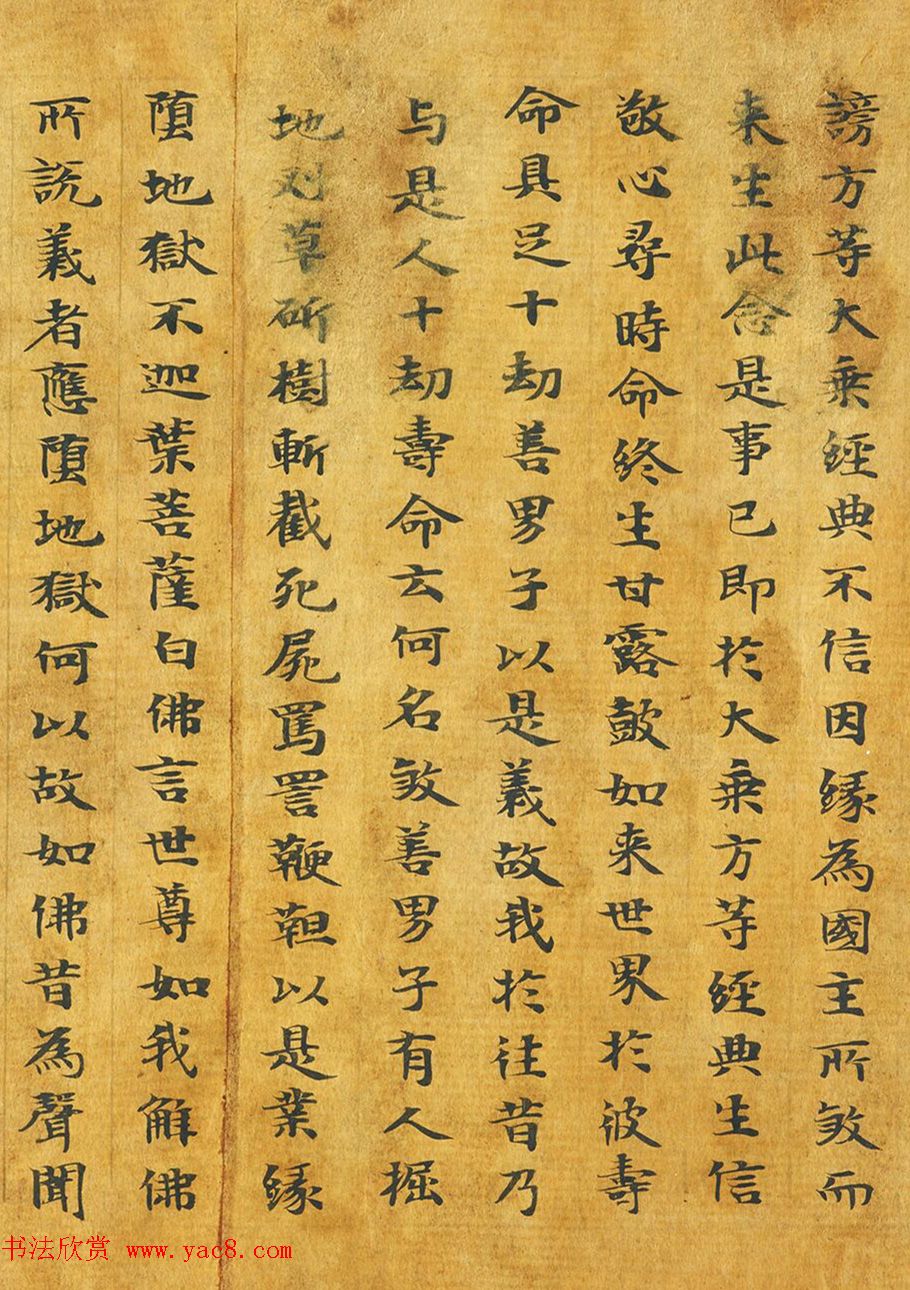 謗方等大乗經典不信因縁為國主所煞而
来生此念是事已即於大乗方等經典生信
敬心尋時命終生甘露皷如来世界於彼壽
命具足十劫善男子以是義故我於往昔乃
与是人十劫壽命云何名煞善男子有人掘
地刈草斫樹斬截死屍罵詈鞭靼以是業縁
堕地獄不迦葉菩薩白佛言世尊如我解佛
所説義者應堕地獄何以故如佛昔為聲聞
书法欣赏 www.yac8.com